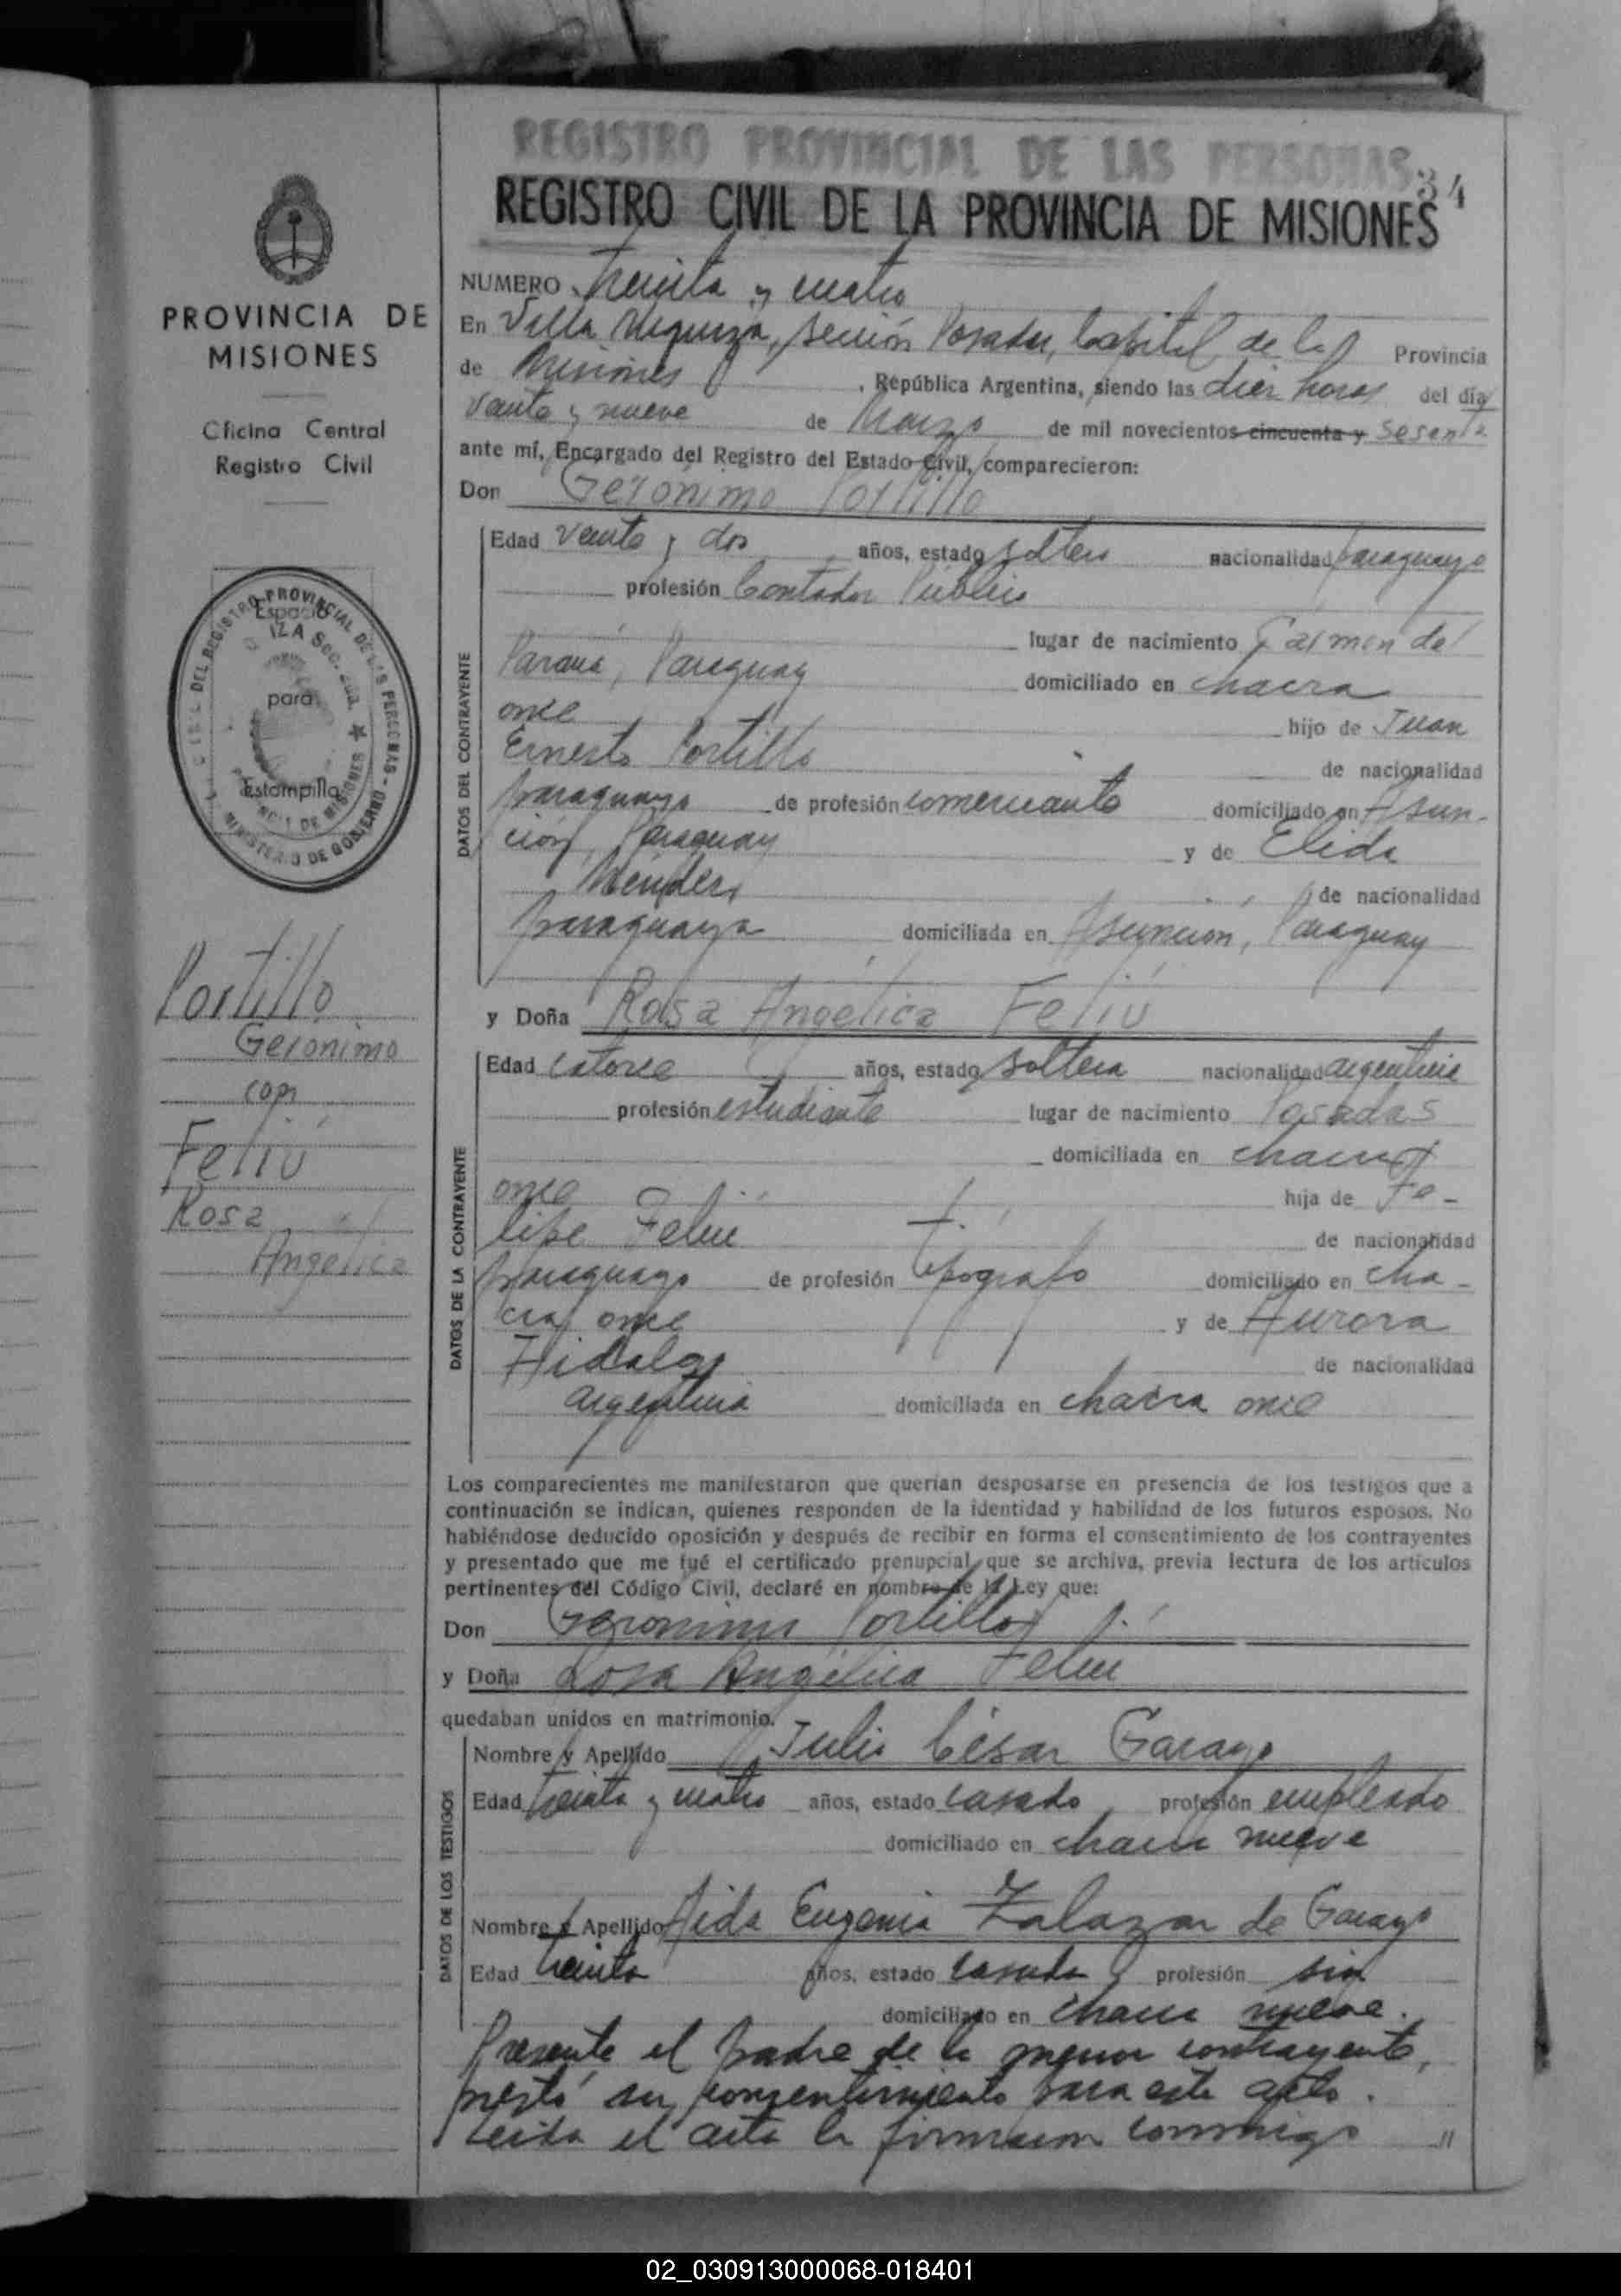 REGISTRO PROVINCIAL DE LAS PERSONAS
34
REGISTRO CIVIL DE LA PROVINCIA DE MISIONES
PROVINCIA DE
MISIONES
Oficina Central
Registro Civil
Espacio
para
Estampilla
Portillo
Gerónimo
con
Feliú
Rosa
Angélica
NUMERO treinta y cuatro
En Villa Urquiza, sección Posadas, Capital de la Provincia
de Misiones, República Argentina, siendo las diez horas del día
veinte y nueve de Marzo de mil novecientos cincuenta y sesenta
ante mí, Encargado del Registro del Estado Civil, comparecieron:
Don Gerónimo Portillo
DATOS DEL CONTRAYENTE
Edad veinte y dos años, estado soltero nacionalidad paraguayo
profesión Contador Público
lugar de nacimiento Carmen del
Paraná, Paraguay domiciliado en chacra
once hijo de Juan
Ernesto Portillo de nacionalidad
paraguayo de profesión comerciante domiciliado en Asun-
ción, Paraguay y de Elida
Méndez de nacionalidad
paraguaya domiciliada en Asunción, Paraguay
y Doña Rosa Angélica Feliú
DATOS DE LA CONTRAYENTE
Edad catorce años, estado soltera nacionalidad argentina
profesión estudiante lugar de nacimiento Posadas
domiciliada en chacra
once hija de Fe-
lipe Feliú de nacionalidad
paraguayo de profesión tipógrafo domiciliado en cha-
cra once y de Aurora
Hidalgo de nacionalidad
argentina domiciliada en chacra once
Los comparecientes me manifestaron que querían desposarse en presencia de los testigos que a
continuación se indican, quienes responden de la identidad y habilidad de los futuros esposos. No
habiéndose deducido oposición y después de recibir en forma el consentimiento de los contrayentes
y presentado que me fué el certificado prenupcial que se archiva, previa lectura de los artículos
pertinentes del Código Civil, declaré en nombre de la Ley que:
Don Gerónimo Portillo
y Doña Rosa Angélica Feliú
quedaban unidos en matrimonio.
DATOS DE LOS TESTIGOS
Nombre y Apellido Julio César Garayo
Edad treinta y cuatro años, estado casado profesión empleado
domiciliado en chacra nueve
Nombre y Apellido Aida Eugenia Zalazar de Garayo
Edad treinta años, estado casada profesión sin
domiciliado en chacra nueve.
Presente el padre de la menor contrayente,
prestó su consentimiento para este acto.
Leída el acta la firmaron conmigo //
02_030913000068-018401